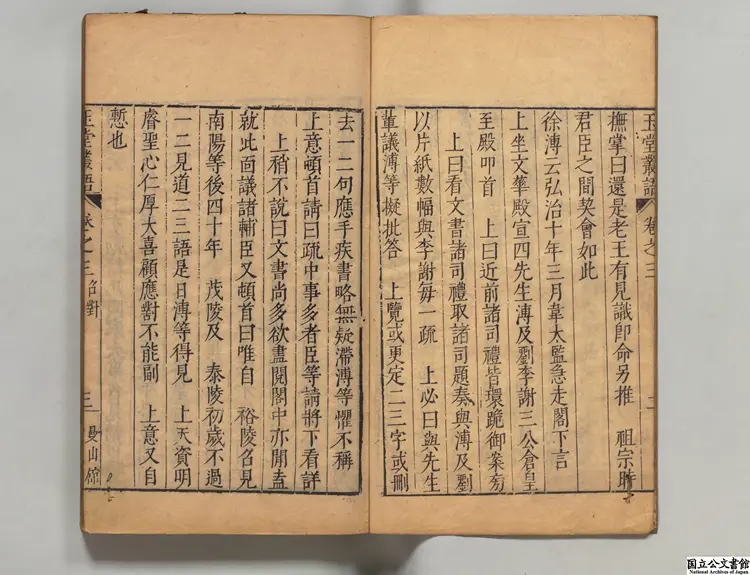 玉堂叢語 卷之三 二
撫掌曰還是老王有見識即命另推 祖宗時
君臣之間契會如此
徐溥云弘治十年三月韋太監急走閣下言
上坐文華殿宣四先生溥及劉李謝三公倉皇
至殿叩首 上曰近前諸司禮皆環跪御案旁
上曰看文書諸司禮取諸司題奏與溥及劉
以片紙數幅與李謝每一疏 上必曰與先生
軰議溥等擬批答 上覽或更定二三字或刪
去一二句應手疾書略無疑滯溥等懼不稱
上意頓首請曰疏中事多者臣等請將下看詳
上稍不說曰文書尚多欲盡閱閣中亦閒盍
就此面議諸輔臣又頓首曰唯自 裕陵召見
南陽等後四十年 茂陵及 泰陵初歲不過
一二見道二三語是日溥等得見 上天資明
睿聖心仁厚大喜顧應對不能副 上意又自
慙也
玉堂叢語 卷之三 召對 三 曼山館
国立公文書館
National Archives of Japan